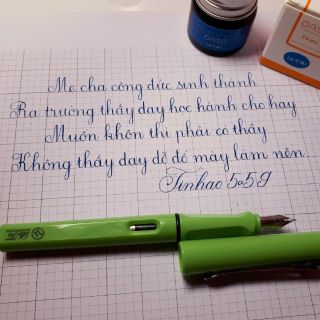 OASO
Mẹ cha công đức sinh thành
Ra trường thầy dạy học hành cho hay
Muôn khôn thì phải có thầy
Không thầy dạy dỗ đố mày làm nên.
Tinhao 5.59